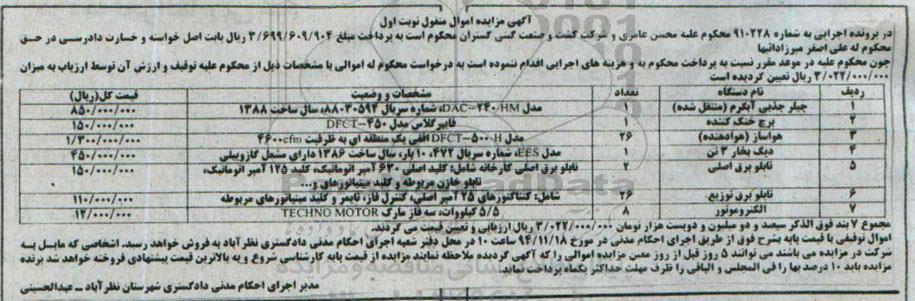 آگهی مزایده اموال منقول نوبت اول
در پرونده اجرایی به شماره ۹۱۰۲۲۸ محکوم علیه محسن عامری و شرکت کشت و صنعت کنی گستران محکوم است به پرداخت مبلغ ۳/۶۹۹/۶۰۹/۹۰۴ ریال بابت اصل خواسته و خسارت دادرسی در حق
محکوم له علی اصغر میرزادانها
چون محکوم علیه در موعد مقرر نسبت به پرداخت محکوم به و هزینه های اجرایی اقدام ننموده است به درخواست محکوم له اموالی با مشخصات ذیل از محکوم علیه توقیف و ارزش آن توسط ارزیاب به میزان
۳/۰۲۲/۰۰۰/۰۰۰ ریال تعیین گردیده است
ردیف نام دستگاه تعداد مشخصات و وضعیت قیمت کل(ریال)
۱ چیلر جذبی آبگرم (منتقل شده) ۱ مدل DAC-۲۴۰/HM، شماره سریال ۸۸۰۳۰۵۹۴، سال ساخت ۱۳۸۸ ۸۵۰/۰۰۰/۰۰۰
۲ برج خنک کننده ۱ فایبرگلاس مدل DFCT-۴۵۰ ۱۵۰/۰۰۰/۰۰۰
۳ هواساز (هوادهنده) ۲۶ مدل DFCT-۵۰۰-H افقی یک منطقه ای به ظرفیت ۴۶۰۰cfm ۱/۳۰۰/۰۰۰/۰۰۰
۴ دیگ بخار ۳ تن ۱ مدل EES، شماره سریال ۴۷۲، ۱۰ بار، سال ساخت ۱۳۸۶ دارای مشعل گازوییلی ۴۵۰/۰۰۰/۰۰۰
۵ تابلو برق اصلی ۲ تابلو برق اصلی کارخانه شامل: کلید اصلی ۶۳۰ آمپر اتوماتیک، کلید ۱۲۵ آمپر اتوماتیک، ۱۵۰/۰۰۰/۰۰۰
تابلو خازن مربوطه و کلید مینیاتورهای و...
۶ تابلو برق توزیع ۲۶ شامل: کنتاکتورهای ۲۵ آمپر اصلی، کنترل فاز، تایمر و کلید مینیاتورهای مربوطه ۱۱۰/۰۰۰/۰۰۰
۷ الکتروموتور ۸ ۵/۵ کیلووات، سه فاز مارک TECHNO MOTOR ۱۲/۰۰۰/۰۰۰
مجموع ۷ بند فوق الذکر سیصد و دو میلیون و دویست هزار تومان ۳/۰۲۲/۰۰۰/۰۰۰ ریال ارزیابی و تعیین قیمت می گردند.
اموال توقیفی با قیمت پایه بشرح فوق از طریق اجرای احکام مدنی در مورخ ۹۴/۱۱/۱۸ ساعت ۱۰ در محل دفتر شعبه اجرای احکام مدنی دادگستری نظرآباد به فروش خواهد رسید. اشخاصی که مایل به
شرکت در مزایده می باشند می توانند ۵ روز قبل از روز معین مزایده اموالی را که آگهی گردیده ملاحظه نمایند مزایده از قیمت پایه کارشناسی شروع و به بالاترین قیمت پیشنهادی فروخته خواهد شد برنده
مزایده باید ۱۰ درصد بها را فی المجلس و الباقی را ظرف مهلت حداکثر یکماه پرداخت نماید.
مدیر اجرای احکام مدنی دادگستری شهرستان نظرآباد ــ عبدالحسینی